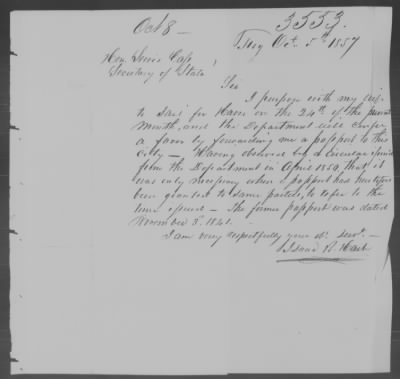 Oct 8 —
3553.
Troy Oct. 5th 1857
Hon. Lewis Cass,
Secretary of State
Sir
I purpose with my wife
to sail for Havre on the 24th of the present
month, and the Department will confer
a favor by forwarding me a passport to this
City — Having observed by a Circular issued
from the Department in April 1850 that it
was only necessary when a passport has heretofore
been granted to same parties, to refer to the
time issued — The former passport was dated
November 3d 1841.
I am very respectfully your ob. Servt. —
R. Hart